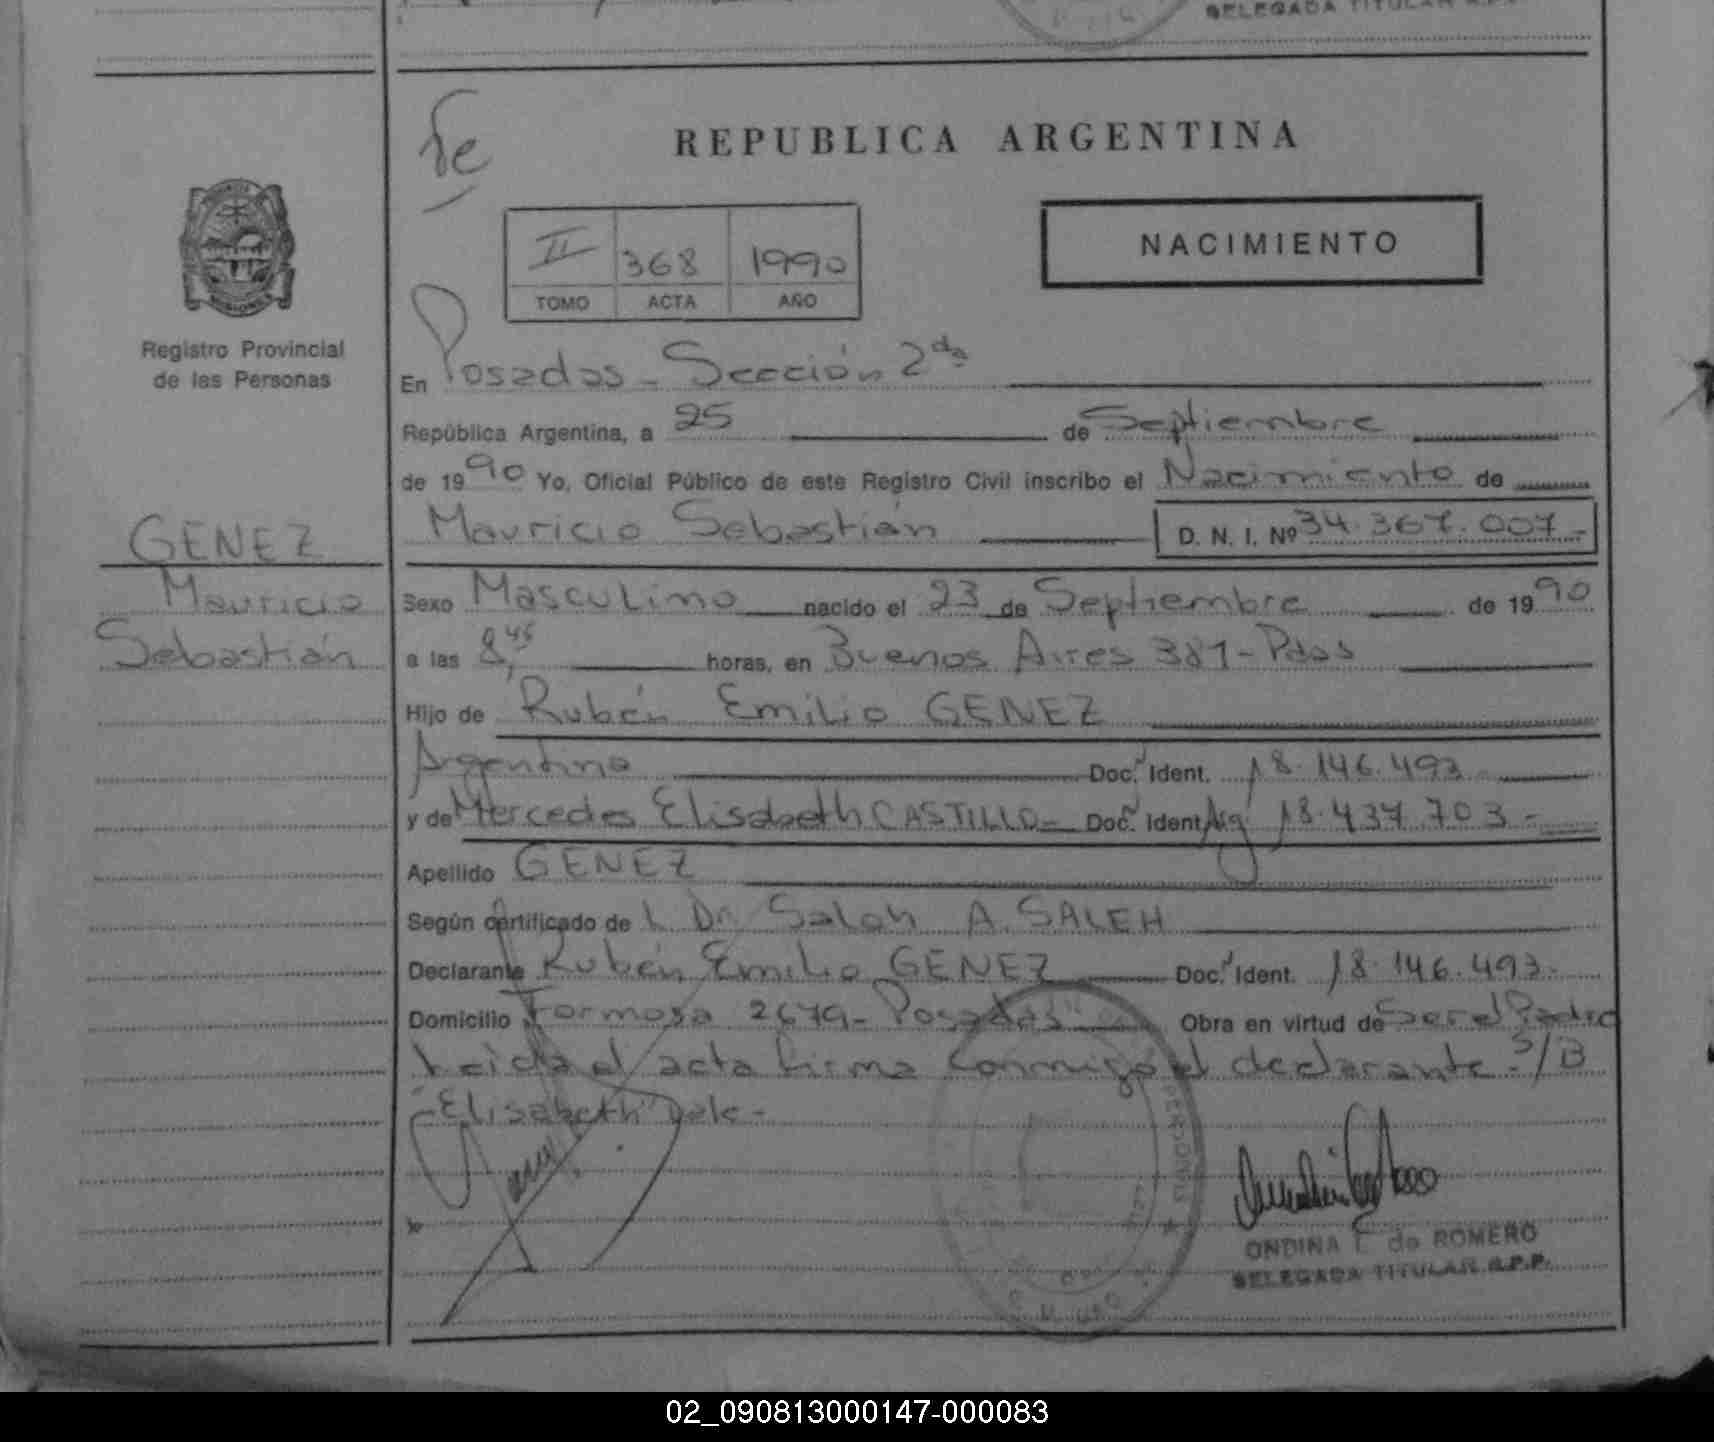 DELEGADA TITULAR R.P.P.
REPUBLICA ARGENTINA
II 368 1990
TOMO ACTA AÑO
NACIMIENTO
Registro Provincial
de las Personas
MISIONES
En Posadas - Sección 2da
República Argentina, a 25 de Septiembre
de 1990 Yo, Oficial Público de este Registro Civil inscribo el Nacimiento de
GENEZ
Mauricio
Sebastián
Mauricio Sebastián D. N. I. Nº 34.367.007-
Sexo Masculino nacido el 23 de Septiembre de 1990
a las 8,45 horas, en Buenos Aires 381 - Pdas
Hijo de Rubén Emilio GENEZ
Argentino Doc. Ident. 18.146.493
y de Mercedes Elisabeth CASTILLO- Doc. Ident. Arg 18.437.703-
Apellido GENEZ
Según certificado de L Dr. Saleh A. SALEH
Declarante Rubén Emilio GENEZ Doc. Ident. 18.146.493-
Domicilio Formosa 2679- Posadas Obra en virtud de Ser el Padre
Leida el acta firma conmigo el declarante. S/B
"Elisabeth" Vale-
ONDINA de ROMERO
DELEGADA TITULAR R.P.P.
02_090813000147-000083